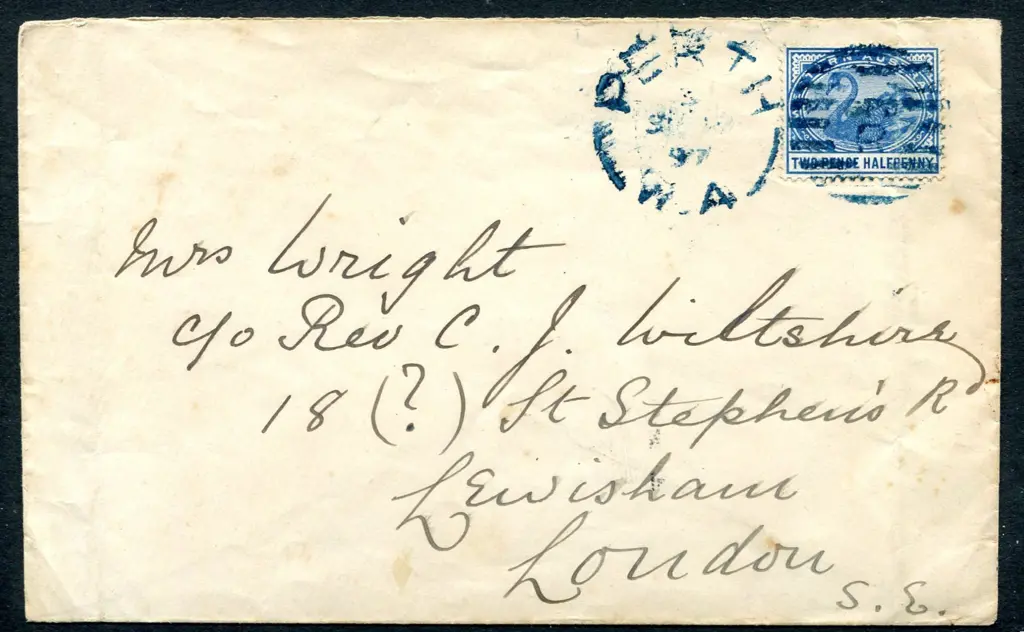 PERTH
97
W.A
RN AUS
TWO PENCE HALFPENNY
Mrs Wright
c/o Rev C. J. Wiltshire
18 (?) St Stephen's Rd
Lewisham
London
S. E.